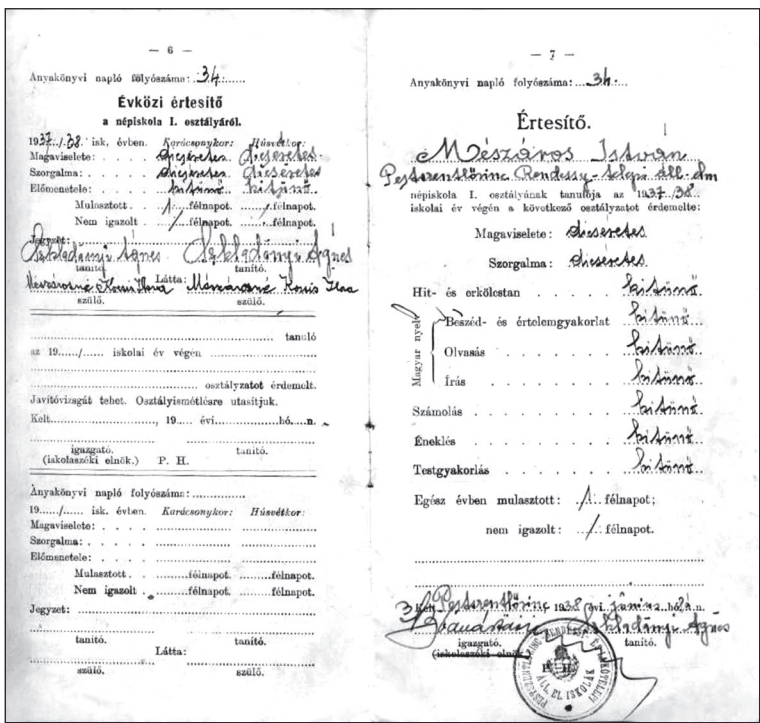 — 6 —
Anyakönyvi napló folyószáma: 34.
Évközi értesítő
a népiskola I. osztályáról.
1937/38. isk. évben. Karácsonykor: Húsvétkor:
Magaviselete: dicséretes dicséretes
Szorgalma: dicséretes dicséretes
Előmenetele: kitünő kitünő
Mulasztott 1 félnapot. / félnapot.
Nem igazolt / félnapot. félnapot.
Jegyzet:
Szkladányi Ágnes Szkladányi Ágnes
tanító. Látta: tanító.
Mészárosné Mészárosné
szülő. szülő.
tanuló
az 19....../...... iskolai év végén
osztályzatot érdemelt.
Javítóvizsgát tehet. Osztályismétlésre utasítjuk.
Kelt, 19...... évi hó n.
igazgató. tanító.
(iskolaszéki elnök.) P. H.
Anyakönyvi napló folyószáma:
19....../...... isk. évben. Karácsonykor: Húsvétkor:
Magaviselete:
Szorgalma:
Előmenetele:
Mulasztott félnapot. félnapot.
Nem igazolt félnapot. félnapot.
Jegyzet:
tanító. tanító.
Látta:
szülő. szülő.
— 7 —
Anyakönyvi napló folyószáma: 34.
Értesítő.
Mészáros István
Pestszentlőrinc Rendessy-telepi áll. elm
népiskola I. osztályának tanulója az 1937/38
iskolai év végén a következő osztályzatot érdemelte:
Magaviselete: dicséretes
Szorgalma: dicséretes
Hit- és erkölcstan kitünő
Magyar nyelv
Beszéd- és értelemgyakorlat kitünő
Olvasás kitünő
Írás kitünő
Számolás kitünő
Éneklés kitünő
Testgyakorlás kitünő
Egész évben mulasztott: 1 félnapot;
nem igazolt: / félnapot.
Kelt Pestszentlőrinc 1938 évi június hó n.
Szkladányi Ágnes
igazgató. tanító.
(iskolaszéki elnök)
P. H.
ÁLL. EL. ISKOLÁK